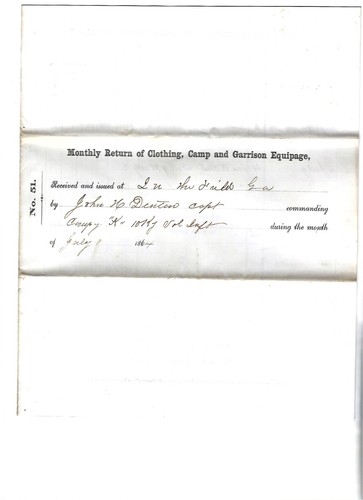 No. 51.
Monthly Return of Clothing, Camp and Garrison Equipage,
Received and issued at In the Field Ga
by John H Denton Capt commanding
Compy K" 10 Ky Vol Inft during the month
of July 1864